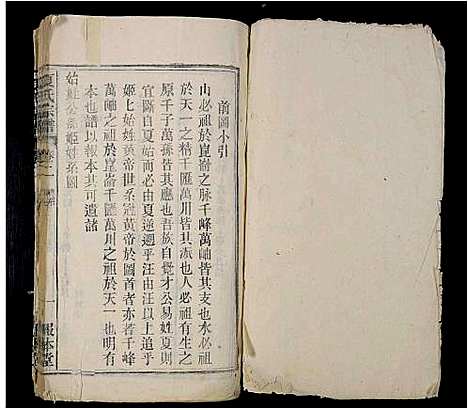 前圖小引
山必祖於崑崙之脉千峰萬岫皆其支也水必祖
於天一之精千匯萬川皆其派也人必祖有生之
原千子萬孫皆其應也吾族自覺才公易姓夏則
宜斷自夏始而必由夏逆遡乎汪由汪以上追乎
姬上始姓黃帝世系冠黃帝於圖首者亦若千峰
萬岫之祖於崑崙千匯萬川之祖於天一也明有
本也譜以報本其可遺諸
始姓公孫姬姓系圖
夏氏宗譜
卷之一
一
報本堂